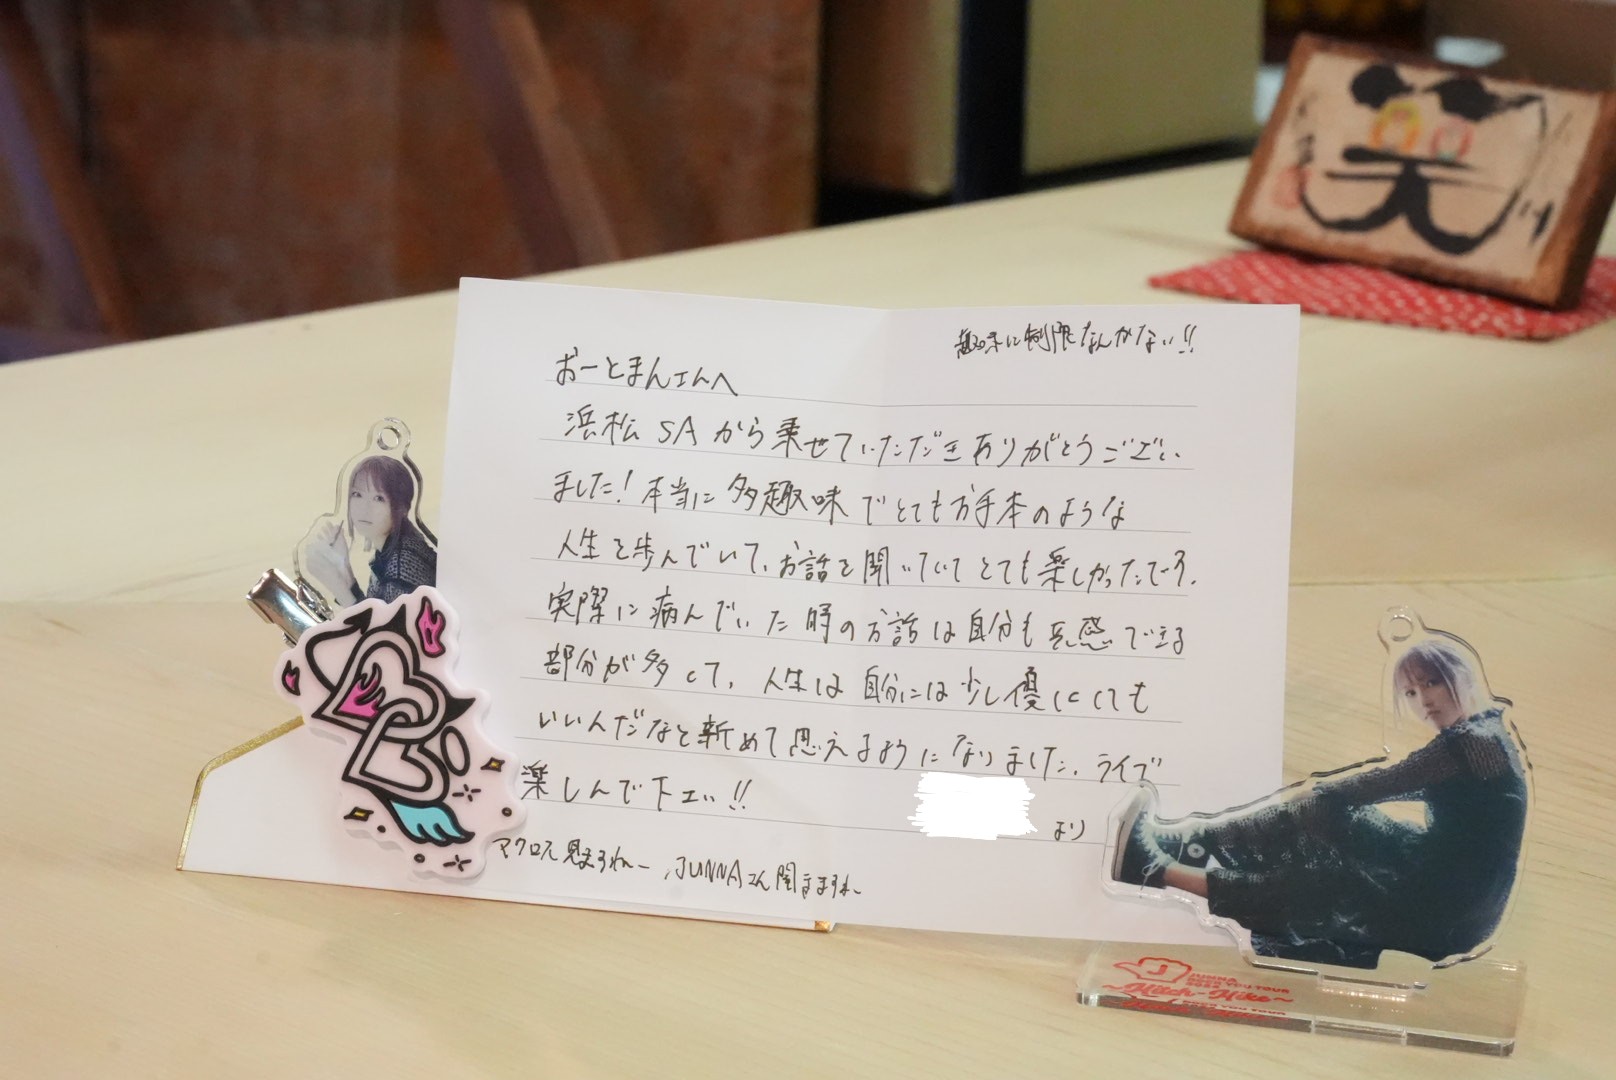 趣味に制限なんかない!!
おーとまんさんへ
浜松SAから乗せていただきありがとうござい
ました!本当に多趣味でとてもお手本のような
人生を歩んでいて、お話を聞いていてとても楽しかったです。
実際に病んでいた時のお話は自分も共感できる
部分が多くて、人生は自分には少し優しくても
いいんだなと新めて思えるようになりました。ライブ
楽しんで下さい!!
より
マクロス見ますねー、JUNNAさん聞きますねー
笑
J JUNNA
ROCK YOU TOUR
2024
~Hitch-Hike~